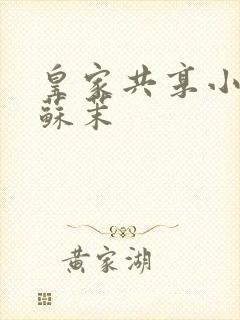 皇家共享小
蘇茉
黄家湖